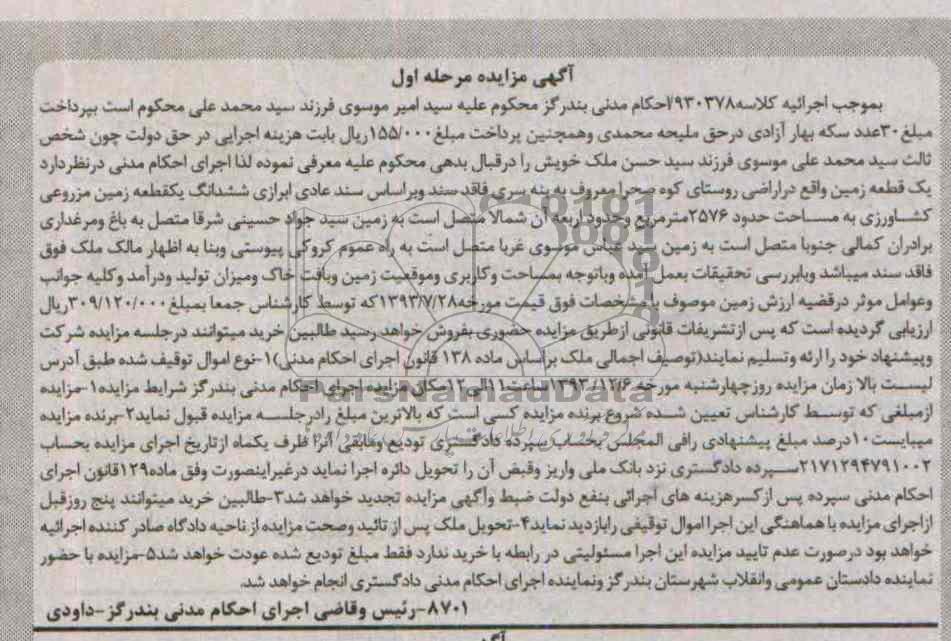 آگهی مزایده مرحله اول
بموجب اجرائیه کلاسه۹۳۰۳۷۸/احکام مدنی بندرگز محکوم علیه سید امیر موسوی فرزند سید محمد علی محکوم است بپرداخت
مبلغ۳۰عدد سکه بهار آزادی درحق ملیحه محمدی وهمچنین پرداخت مبلغ۱۵۵/۰۰۰ریال بابت هزینه اجرایی در حق دولت چون شخص
ثالث سید محمد علی موسوی فرزند سید حسن ملک خویش را درقبال بدهی محکوم علیه معرفی نموده لذا اجرای احکام مدنی درنظردارد
یک قطعه زمین واقع دراراضی روستای کوه صحرا معروف به پنه سری فاقد سند وبراساس سند عادی ابرازی ششدانگ یکقطعه زمین مزروعی
کشاورزی به مساحت حدود ۲۵۷۶مترمربع وحدود اربعه آن شمالا متصل است به زمین سید جواد حسینی شرقا متصل به باغ ومرغداری
برادران کمالی جنوبا متصل است به زمین سید عباس موسوی غربا متصل است به راه عموم کروکی پیوستی وبنا به اظهار مالک ملک فوق
فاقد سند میباشد وبابررسی تحقیقات بعمل آمده وباتوجه بمساحت وکاربری وموقعیت زمین وبافت خاک ومیزان تولید ودرآمد وکلیه جوانب
وعوامل موثر درقضیه ارزش زمین موصوف با مشخصات فوق قیمت مورخه۱۳۹۳/۷/۲۸که توسط کارشناس جمعا بمبلغ۳۰۹/۱۲۰/۰۰۰ریال
ارزیابی گردیده است که پس ازتشریفات قانونی ازطریق مزایده حضوری بفروش خواهد رسید طالبین خرید میتوانند درجلسه مزایده شرکت
وپیشنهاد خود را ارئه وتسلیم نمایند(توصیف اجمالی ملک براساس ماده ۱۳۸ قانون اجرای احکام مدنی)۱-نوع اموال توقیف شده طبق آدرس
لیست بالا زمان مزایده روزچهارشنبه مورخه۱۳۹۳/۱۲/۶ساعت۱۱الی۱۲مکان مزایده اجرای احکام مدنی بندرگز شرایط مزایده۱-مزایده
ازمبلغی که توسط کارشناس تعیین شده شروع برنده مزایده کسی است که بالاترین مبلغ رادرجلسه مزایده قبول نماید۲-برنده مزایده
میبایست۱۰درصد مبلغ پیشنهادی رافی المجلس بحساب سپرده دادگستری تودیع ومابقی آنرا ظرف یکماه ازتاریخ اجرای مزایده بحساب
۲۱۷۱۲۹۴۷۹۱۰۰۲سپرده دادگستری نزد بانک ملی واریز وقبض آن را تحویل دائره اجرا نماید درغیراینصورت وفق ماده۱۲۹قانون اجرای
احکام مدنی سپرده پس ازکسرهزینه های اجرائی بنفع دولت ضبط وآگهی مزایده تجدید خواهد شد۳-طالبین خرید میتوانند پنج روزقبل
ازاجرای مزایده با هماهنگی این اجرا اموال توقیفی رابازدید نماید۴-تحویل ملک پس از تائید وصحت مزایده از ناحیه دادگاه صادر کننده اجرائیه
خواهد بود درصورت عدم تایید مزایده این اجرا مسئولیتی در رابطه با خرید ندارد فقط مبلغ تودیع شده عودت خواهد شد۵-مزایده با حضور
نماینده دادستان عمومی وانقلاب شهرستان بندرگز ونماینده اجرای احکام مدنی دادگستری انجام خواهد شد.
۸۷۰۱-رئیس وقاضی اجرای احکام مدنی بندرگز-داودی
ParsNamadData